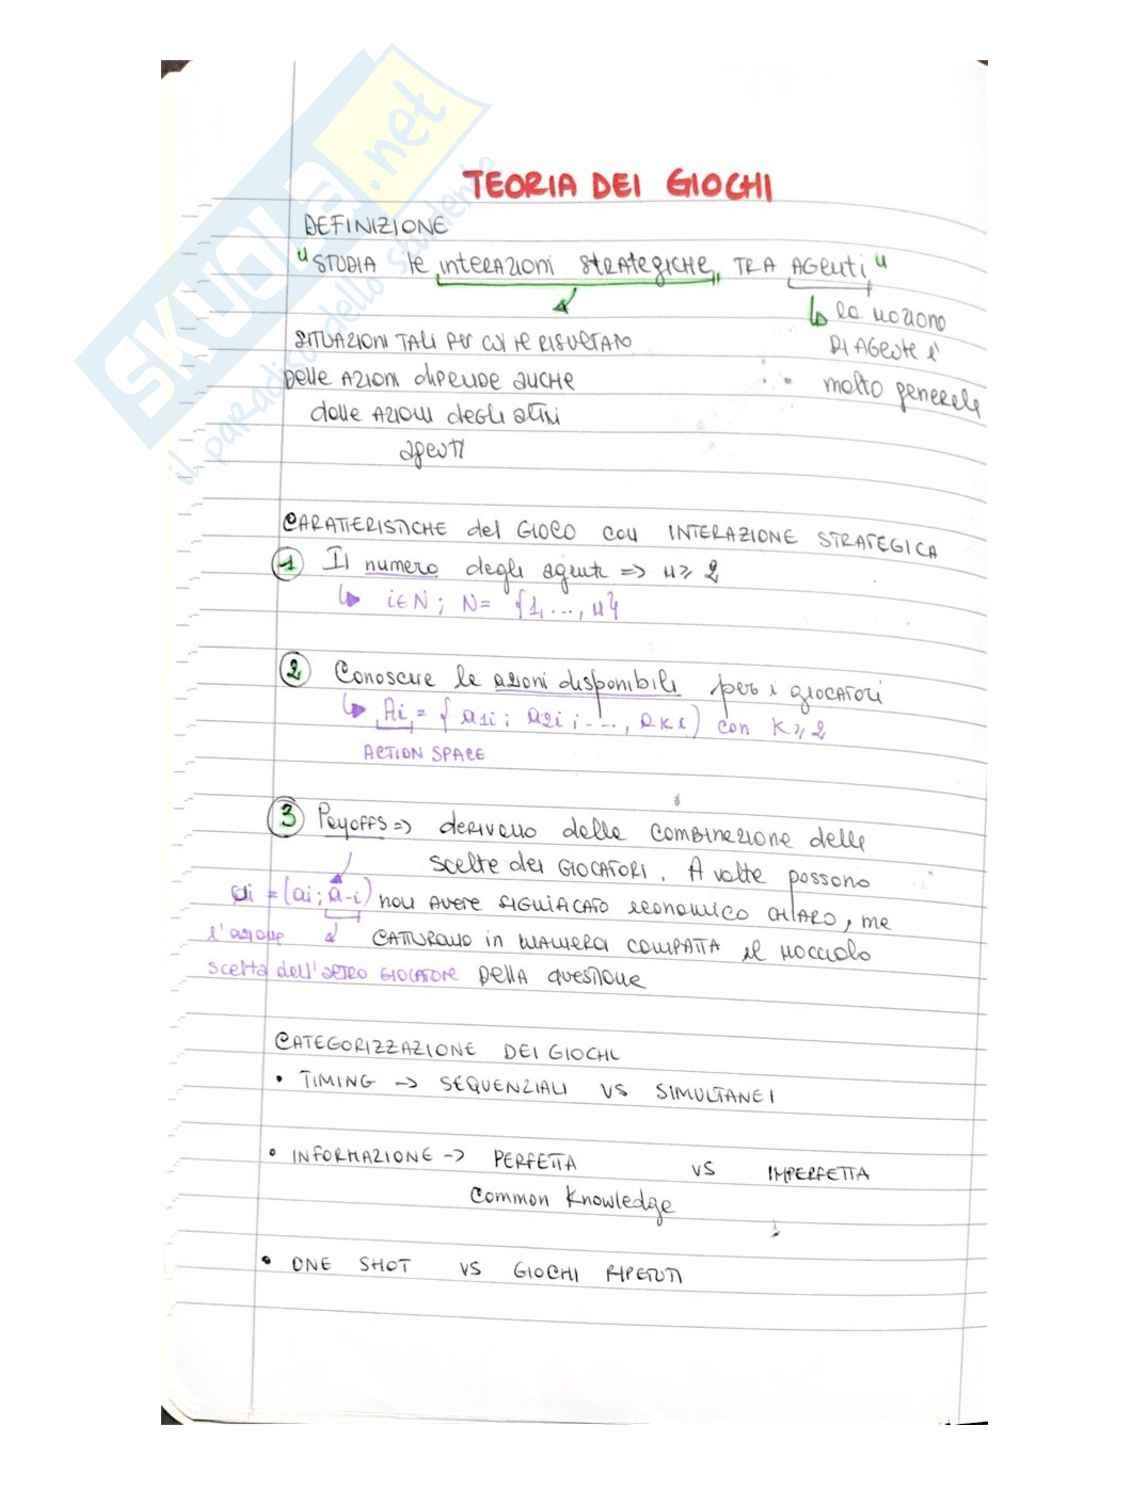 SKUOLA.net
il paradiso dello studente
TEORIA DEI GIOCHI
DEFINIZIONE
"STUDIA le interazioni strategiche, TRA AGenti"
la nozione
DI AGente è
molto generale
SITUAZIONI TALI per cui il RISULTATO
Delle AZIONI dipende anche
dalle AZIONI degli altri
agenti
CARATTERISTICHE del GIOCO con INTERAZIONE STRATEGICA
1 Il numero degli agenti => n ≥ 2
i∈N; N= {1,...,n}
2 Conoscere le azioni disponibili per i giocatori
Ai = { a1i; a2i; ..., aKi } con K ≥ 2
ACTION SPACE
3 Payoffs => derivano dalla combinazione delle
scelte dei GIOCATORI. A volte possono
ui = (ai; a-i) non avere significato economico CHIARO, ma
l'azione CATTURANO in maniera COMPATTA il nocciolo
scelta dell'altro giocatore DELLA questione
CATEGORIZZAZIONE DEI GIOCHI
• TIMING -> SEQUENZIALI VS SIMULTANEI
• INFORMAZIONE -> PERFETTA VS IMPERFETTA
Common Knowledge
• ONE SHOT VS GIOCHI RIPETUTI